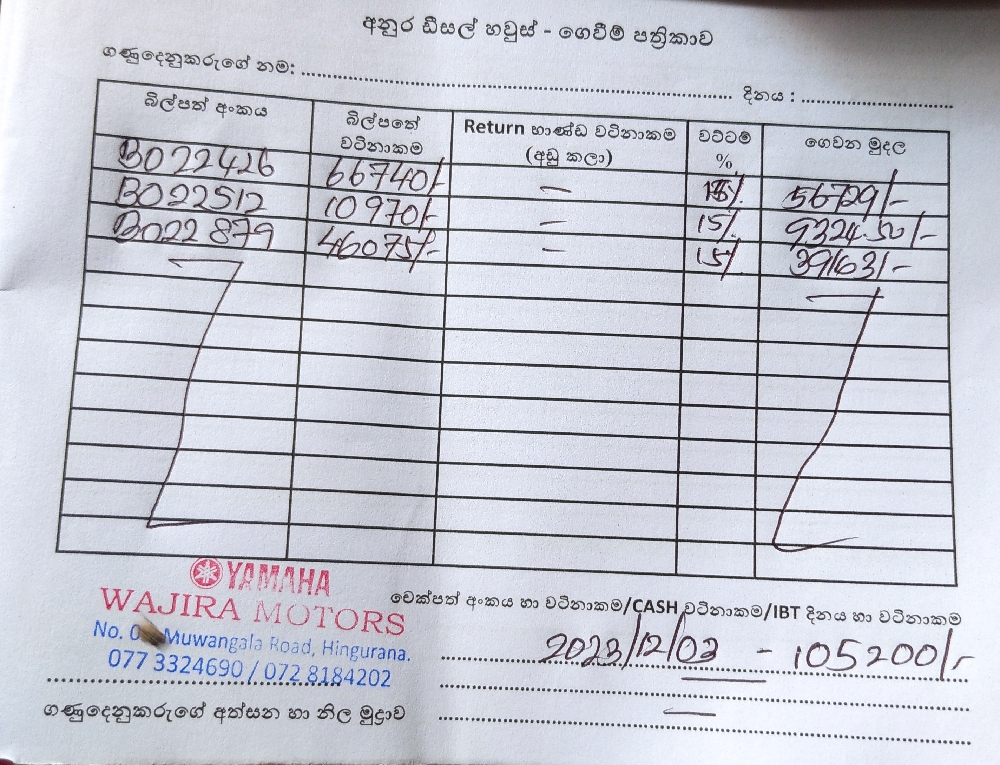 අනුර ඩීසල් හවුස් - ගෙවීම් පත්‍රිකාව
ගණුදෙනුකරුගේ නම: ........................................ දිනය : ....................
බිල්පත් අංකය බිල්පතේ වටිනාකම Return භාණ්ඩ වටිනාකම (අඩු කලා) වට්ටම් % ගෙවන මුදල
B022426 66740/- — 15% 56729/-
B022512 10970/- — 15% 9324.50/-
B022879 46075/- — 15% 39163/-
YAMAHA
WAJIRA MOTORS
No. Muwangala Road, Hingurana.
077 3324690 / 072 8184202
ගණුදෙනුකරුගේ අත්සන හා නිල මුද්‍රාව
චෙක්පත් අංකය හා වටිනාකම/CASH වටිනාකම/IBT දිනය හා වටිනාකම
2023/12/03 - 105200/-